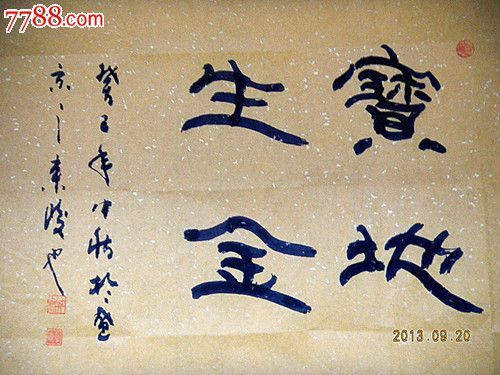 7788.com
寶地
生金
癸巳年中秋於
京
2013.09.20